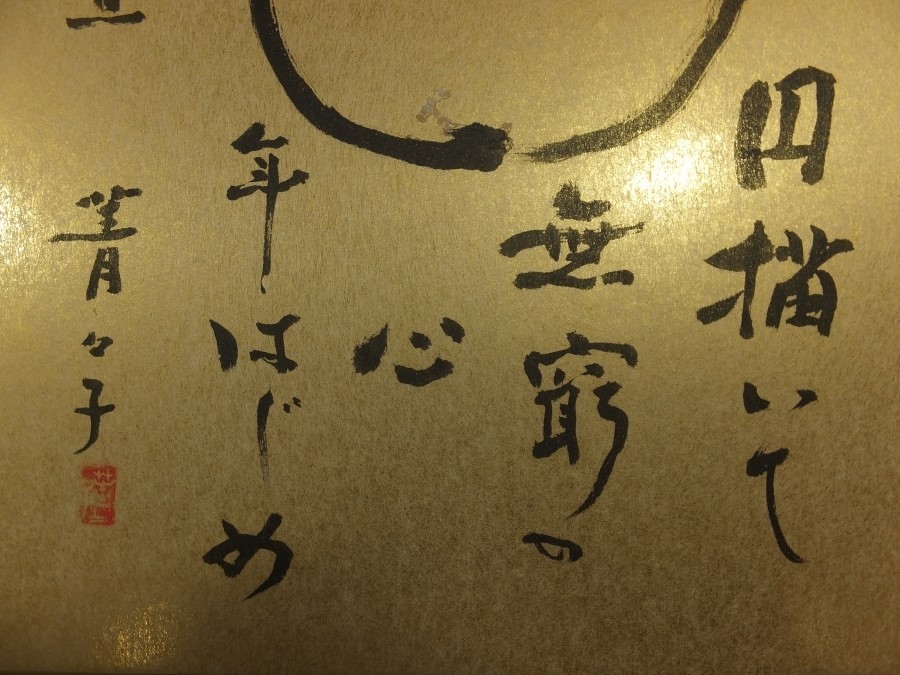 円描いて
無窮の
心
年はじめ
菁々子